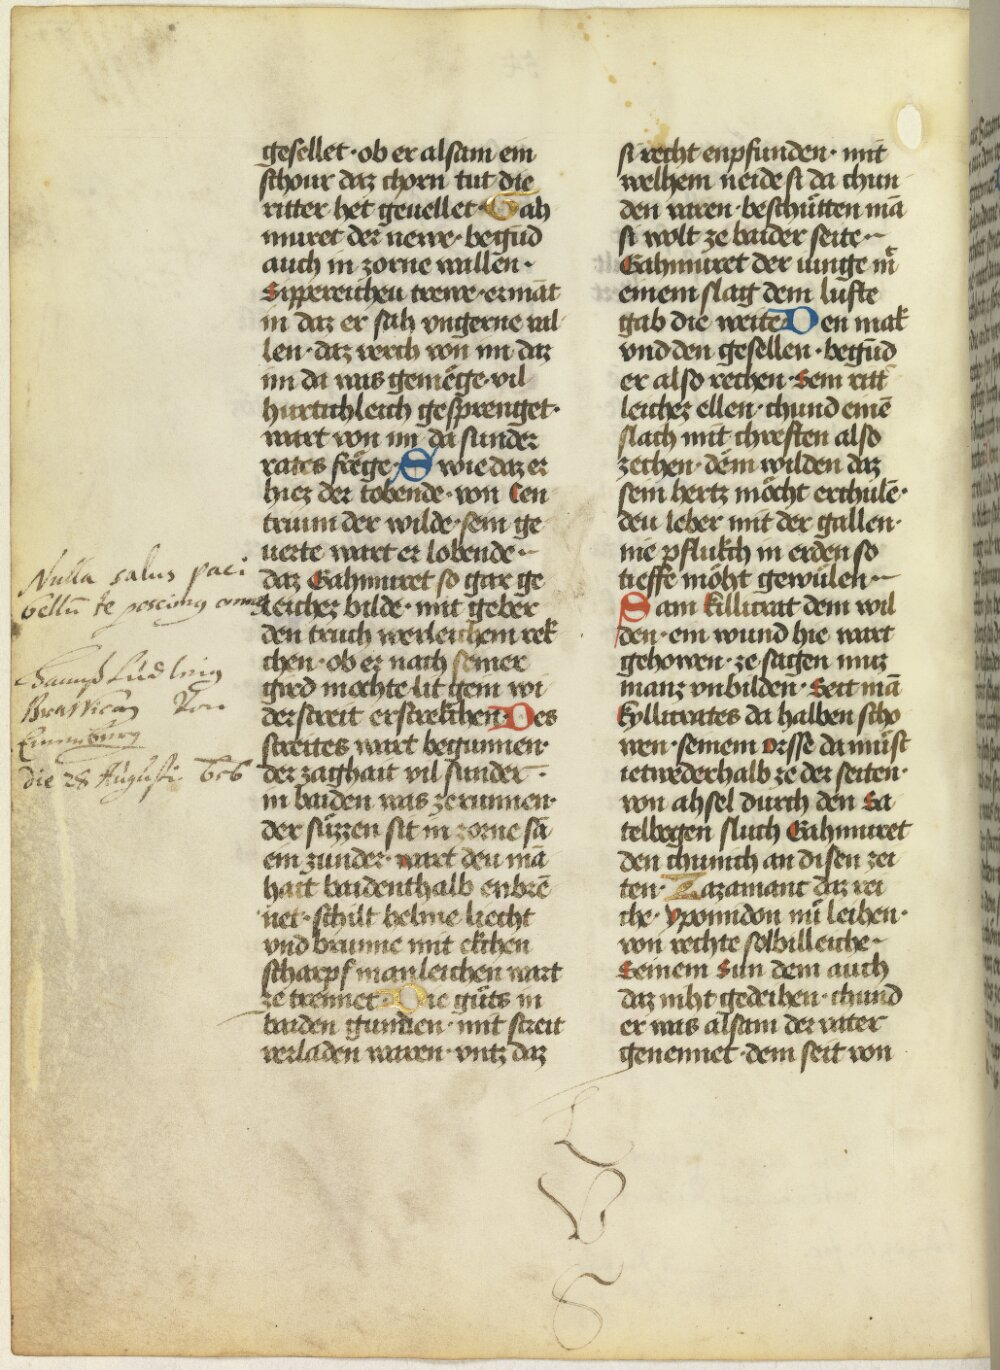 gesellet · ob er alsam ein
schour daz chorn tut die
ritter het geuellet · Gah
muret der newe · begūd
auch in zorne wallen ·
Sippereicheu trewe · ermāt
in daz er sah vngerne val
len · daz verch von im daz
im da was gemēge · vil
hurtichleich gesprenget ·
wart von im da sunder
rates frēge · Swie daz er
hiez der tobende · von Cen
trium der wilde · sein ge
uerte wart er lobende ·
daz Gahmuret so gar ge
leichez bilde · mit geber
den truch werleichem rek
chen · ob er nach seiner
gird mochte lit gein wi
derstreit erstrekchen · Des
streites wart begunnen ·
der zaghait vil sunder ·
in baiden was zerunnen ·
der süzzen sit in zorne sā
ein zunder · wart den mā
hait baidenthalb enbrē
net · schilt helme liecht
vnd brunne mit ekchen
scharpf manleichen wart
ze trennet · Die güts in
baiden gunden · mit streit
verladen waren · vntz daz
si recht enpfunden · mit
welhem neide si da chun
den varen · beschütten mā
si wolt ze baider seite ·
Gahmuret der iunge mͥ
einem slag dem lufte
gab die weite · Den mak
vnd den gesellen · begūd
er also rechen · Sein ritt
leichez ellen · chund einē
slach mit chreften also
zechen · dem wilden daz
sein hertz möcht erchulē ·
deu leber mit der gallen ·
nie pflukch in erden so
tieffe möht gewülen ·
Sam killicrat dem wil
den · ein wund hie wart
gehowen · ze sagen muz
manz vnbilden · Seit mā
kyllicrates da halben scho
wen · seinem orsse da müst
ietwederhalb ze der seiten ·
von ahsel durch den Sa
telbogen sluch Gahmuret
den chunich an disen zei
ten · Zazamanc daz rei
che · yponidon mü leihen ·
von rechte solhilleiche ·
Seinem Sun dem auch
daz niht gedeihen · chund
er was alsam der vater
genennet · dem seit von
Nulla salus
bellū te poscimus omnes
die 28 Augusti 656
L
V
S